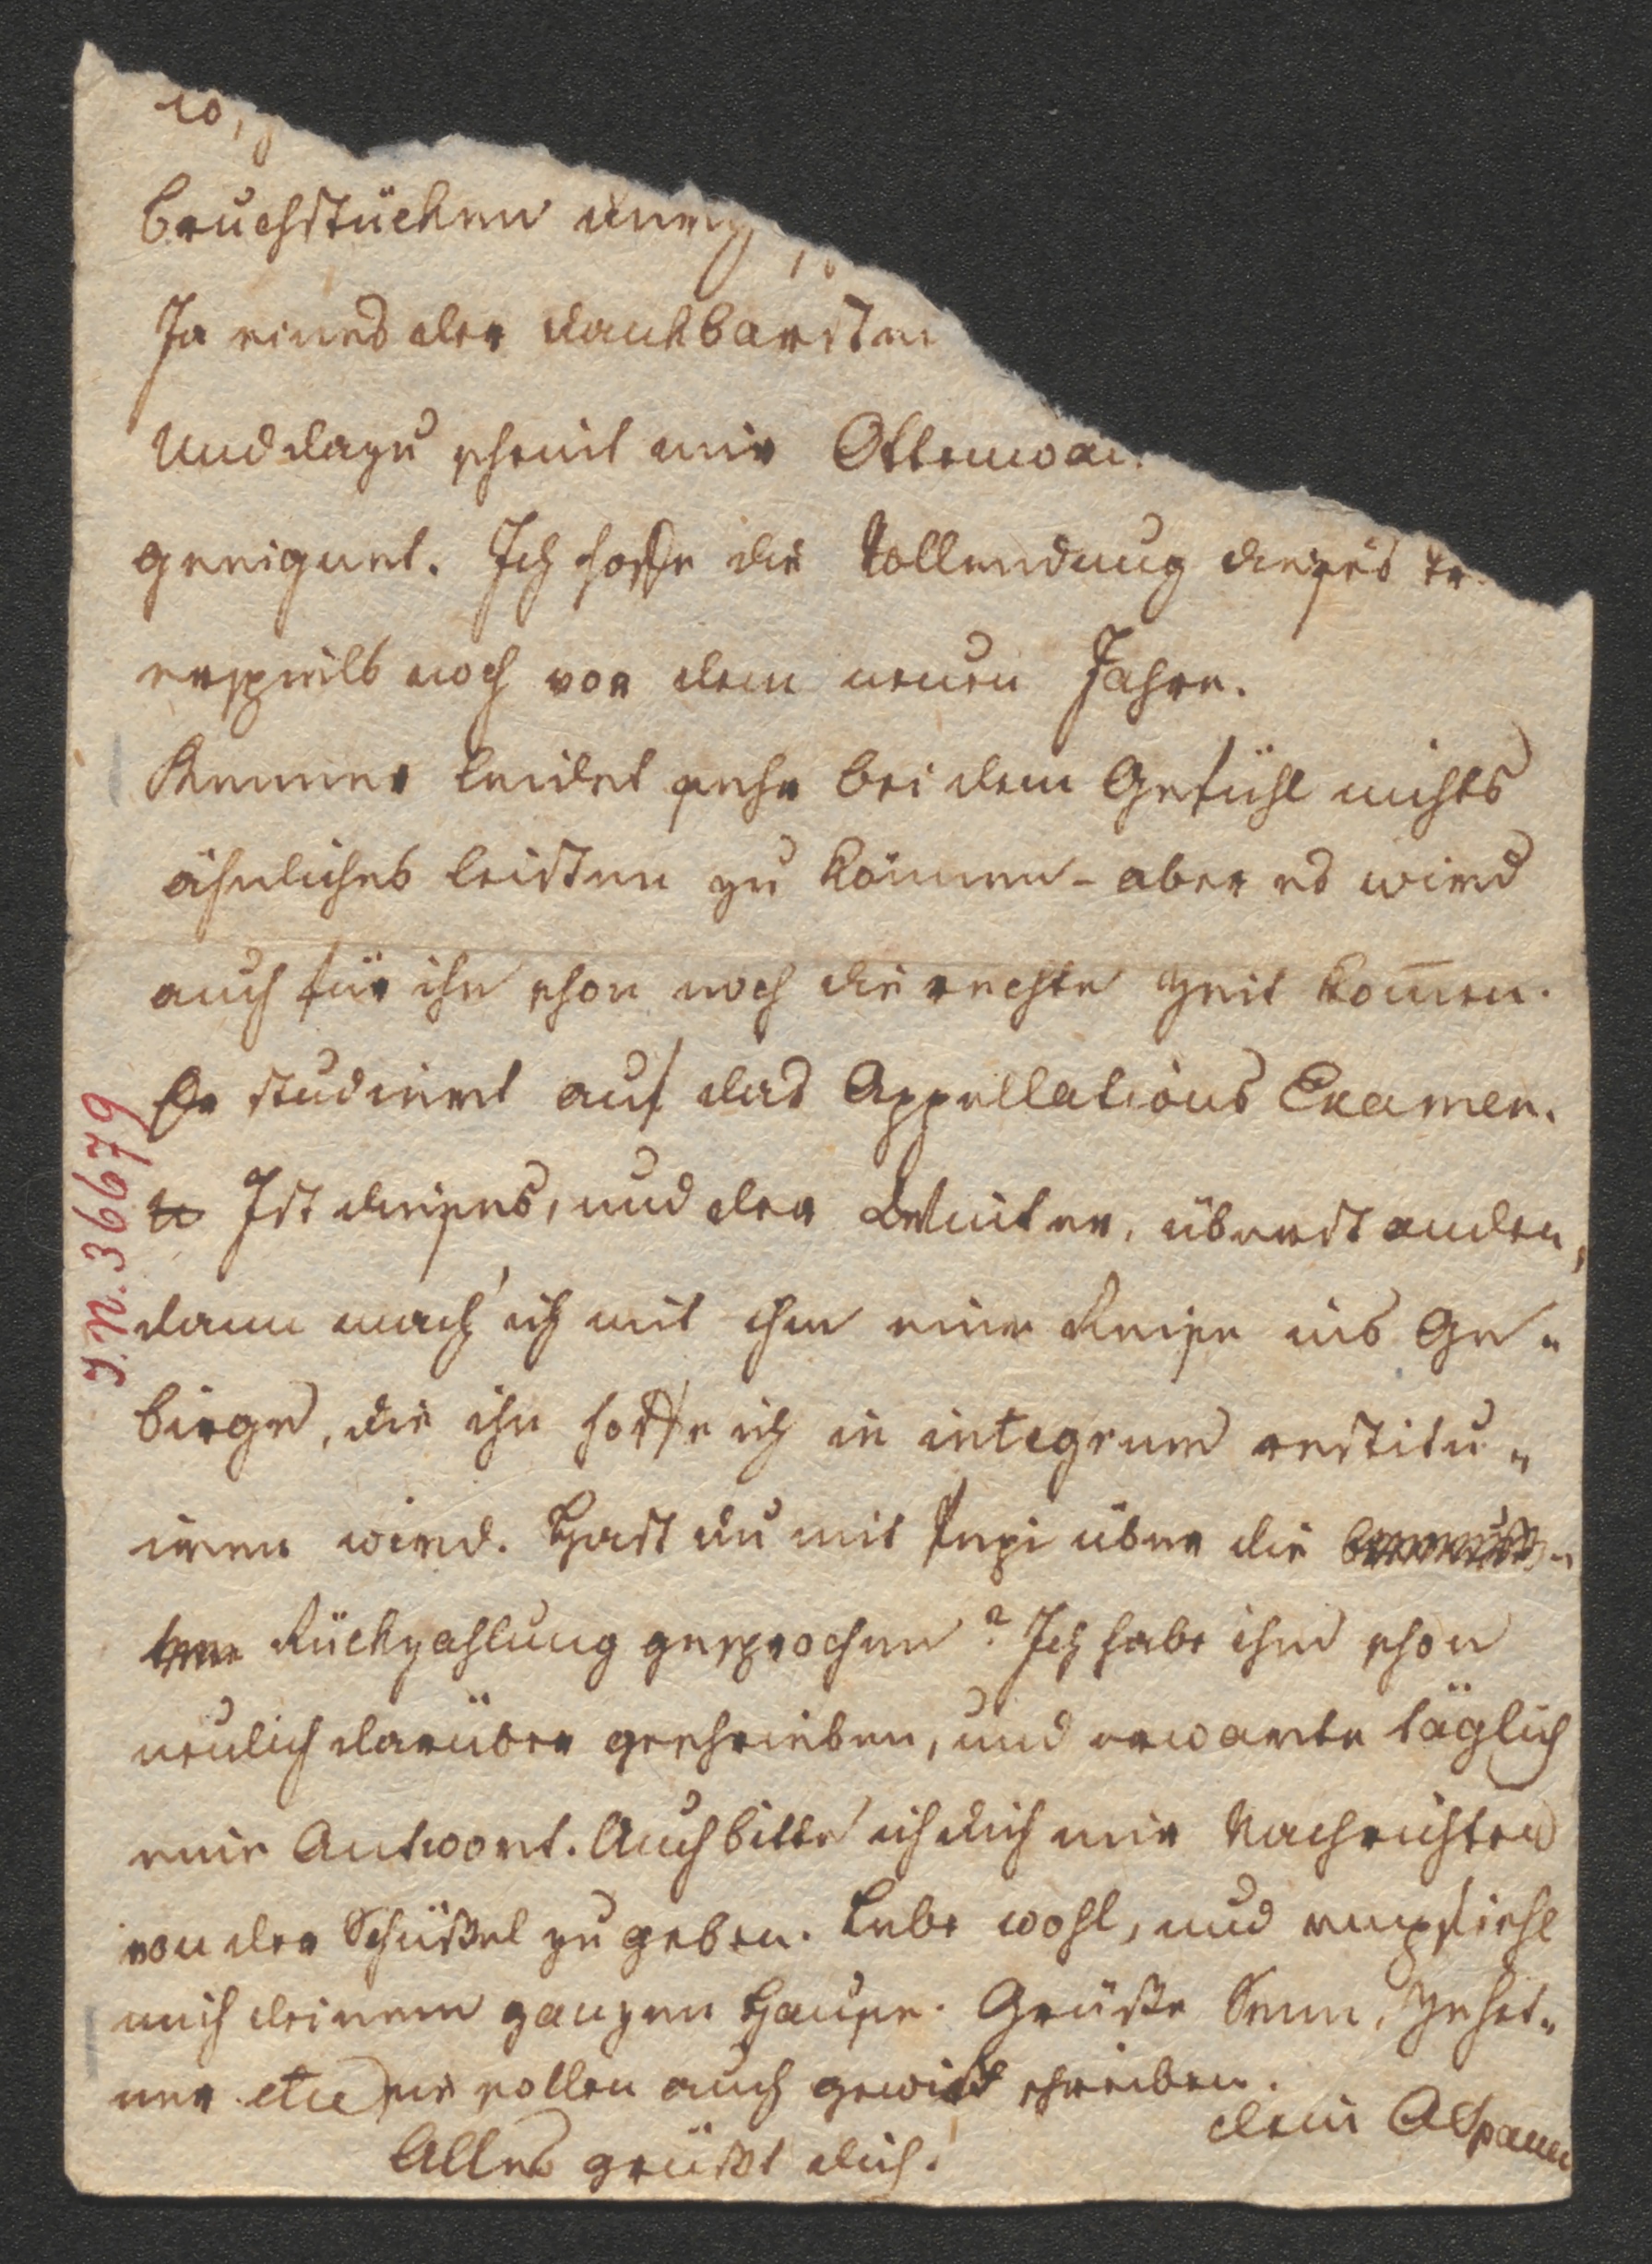 Bruchstücken
Ja eines der dankbarsten
Und dazu scheint mir Ottenwal
geeignet. Ich hoffe die Vollendung dieses Tr
erspiels noch vor dem neuen Jahre.
Kenner leidet sehr bei dem Gefühl nichts
ähnliches leisten zu können - aber es wird
auch für ihn schon noch die rechte Zeit kom̅en.
Er studiert auf das Appellations Examen.
Ist dieses, und der Winter, überstanden,
dann mach' ich mit ihm eine Reise ins Ge„
birge, die ihn hoffe ich in integrum restitu„
iren wird. Hast du mit Pepi über die
Rückzahlung gesprochen? Ich habe ihm schon
neulich darüber geschrieben, und erwarte täglich
eine Antwort. Auch bitte ich dich mir Nachrichten
von der Schüßel zu geben. Lebe wohl, und empfiehl
mich deinem ganzen Hause. Grüße Senn, Zehet„
ner etc sie sollen auch gewiß schreiben.
dein ASpaun
Alles grüßt dich!
J.N. 36679